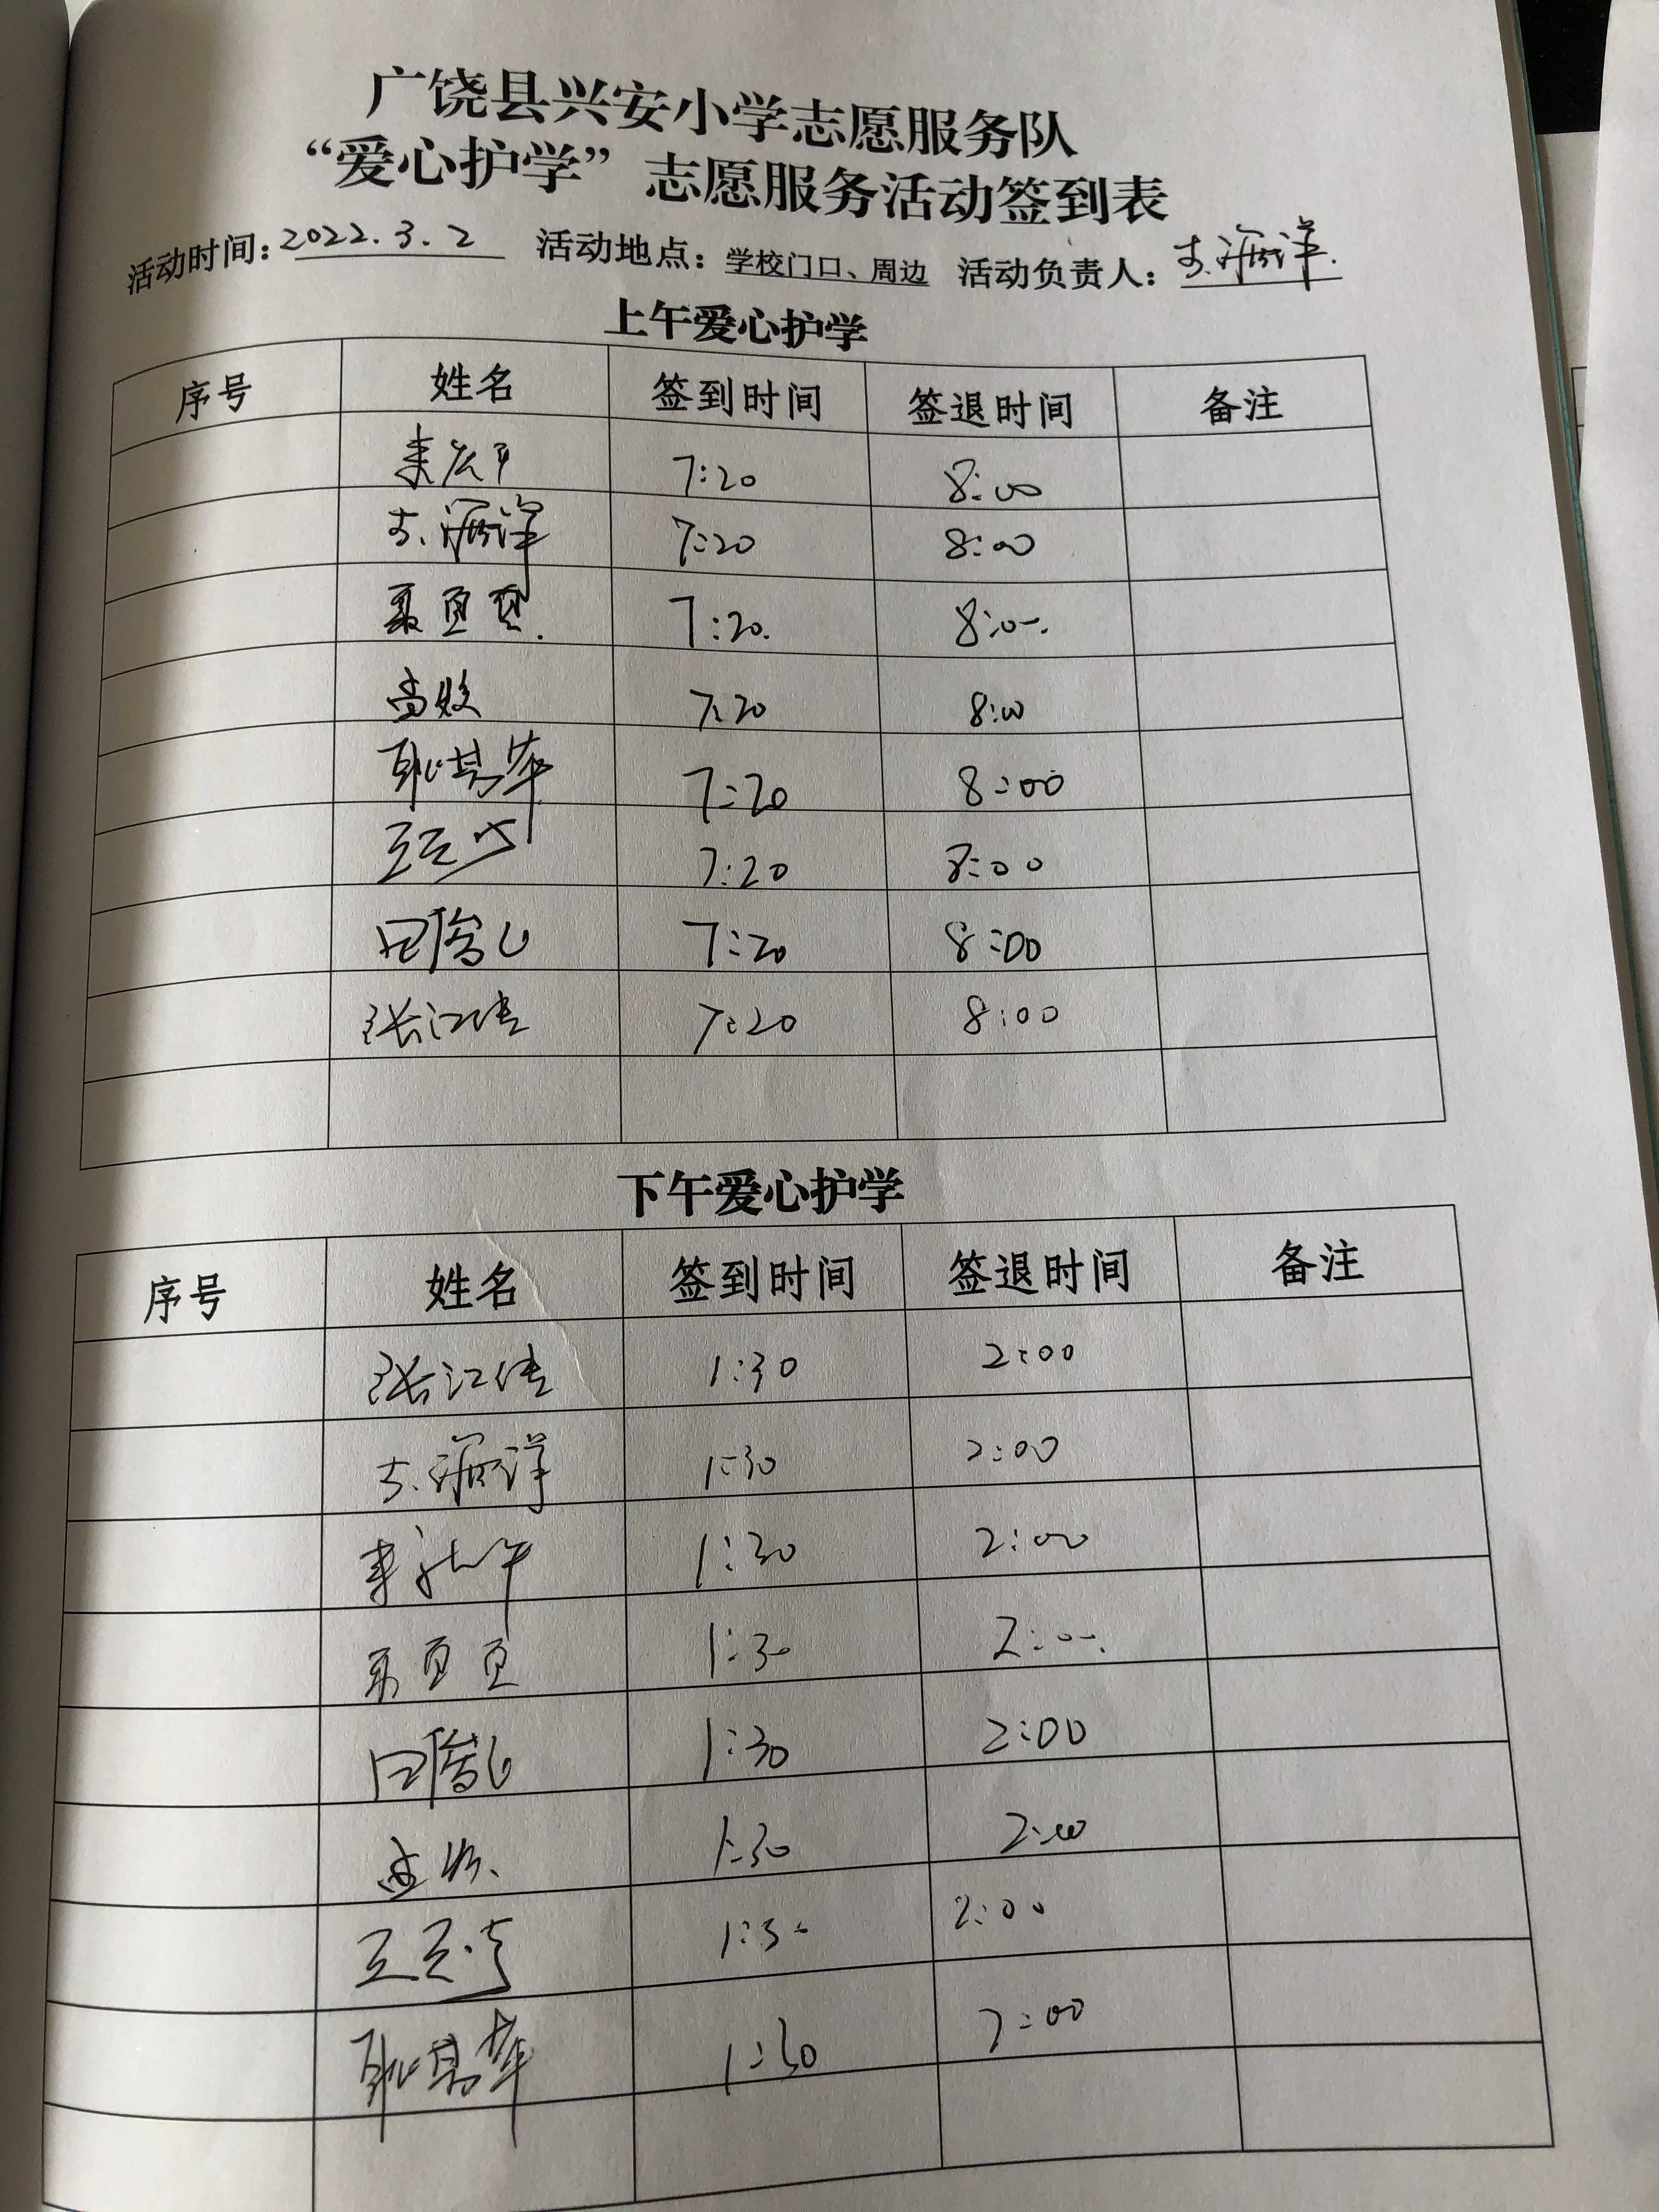 广饶县兴安小学志愿服务队
“爱心护学”志愿服务活动签到表
活动时间：2022.3.2 活动地点：学校门口、周边 活动负责人：海洋
上午爱心护学
序号 姓名 签到时间 签退时间 备注
7:20 8:00
海洋 7:20 8:00
聂真真 7:20 8:00
高姣 7:20 8:00
7:20 8:00
7:20 8:00
7:20 8:00
张江倩 7:20 8:00
下午爱心护学
序号 姓名 签到时间 签退时间 备注
张江倩 1:30 2:00
海洋 1:30 2:00
1:30 2:00
1:30 2:00
1:30 2:00
1:30 2:00
1:30 2:00
1:30 2:00